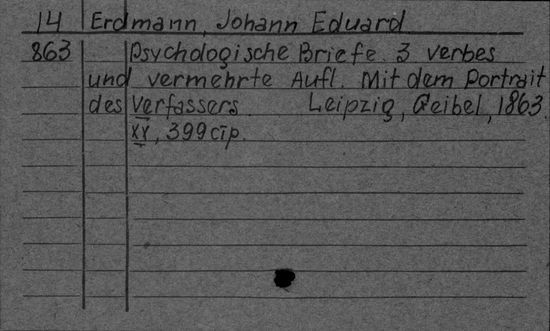 14 Erdmann, Johann Eduard
863 Psychologische Briefe. 3 verbes
und vermehrte Aufl. Mit dem Portrait
des Verfassers. Leipzig, Geibel, 1863.
XX, 399 стр.